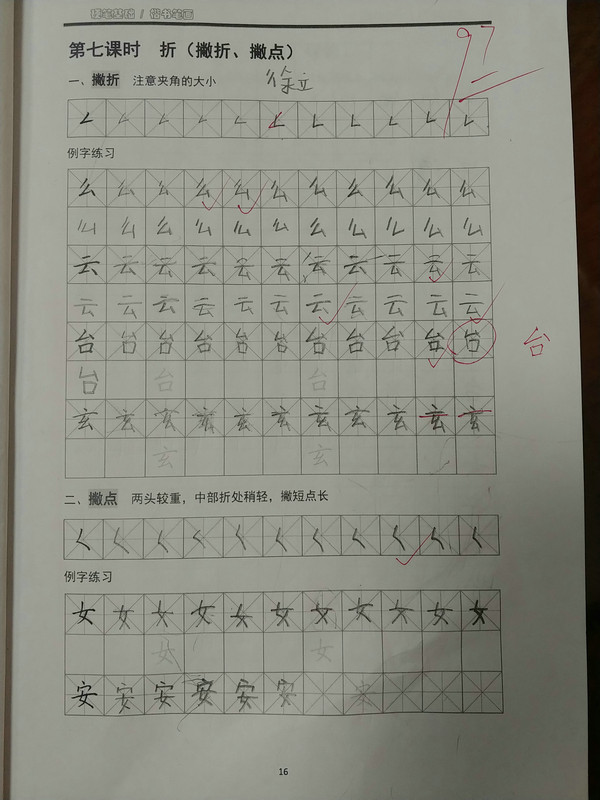 硬笔基础 / 楷书笔画
97
第七课时 折（撇折、撇点）
一、撇折 注意夹角的大小
徐立
例字练习
么 么 么 么 么 么 么 么 么 么 么
么 么 么 么 么 么 么 么 么 么 么
云 云 云 云 云 云 云 云 云 云 云
云 云 云 云 云 云 云 云 云 云 云
台 台 台 台 台 台 台 台 台 台 台 台
台 台 台
玄 玄 玄 玄 玄 玄 玄 玄 玄 玄 玄
玄 玄
二、撇点 两头较重，中部折处稍轻，撇短点长
例字练习
女 女 女 女 女 女 女 女 女 女 女
女 女
安 安 安 安 安 安
16